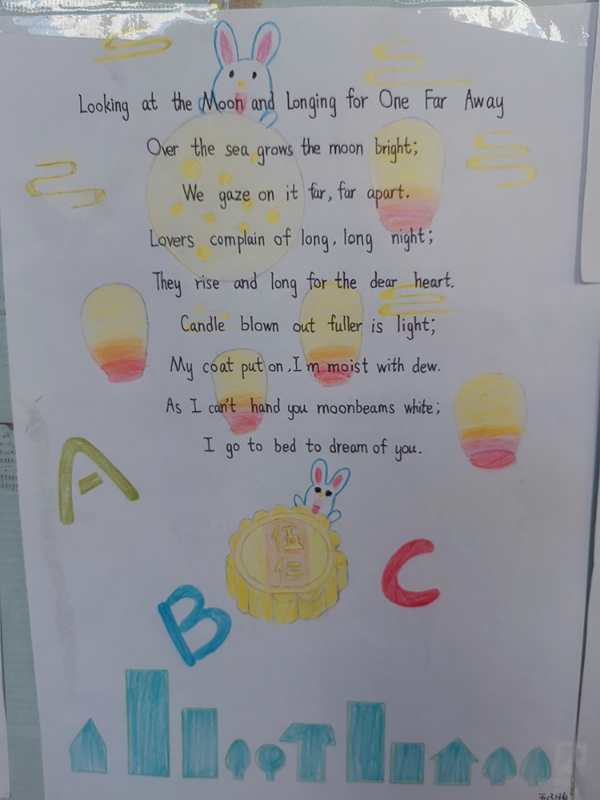 Looking at the Moon and Longing for One Far Away
Over the sea grows the moon bright;
We gaze on it far, far apart.
Lovers complain of long, long night;
They rise and long for the dear heart.
Candle blown out fuller is light;
My coat put on, I'm moist with dew.
As I can't hand you moonbeams white;
I go to bed to dream of you.
伍
仁
A
B
C